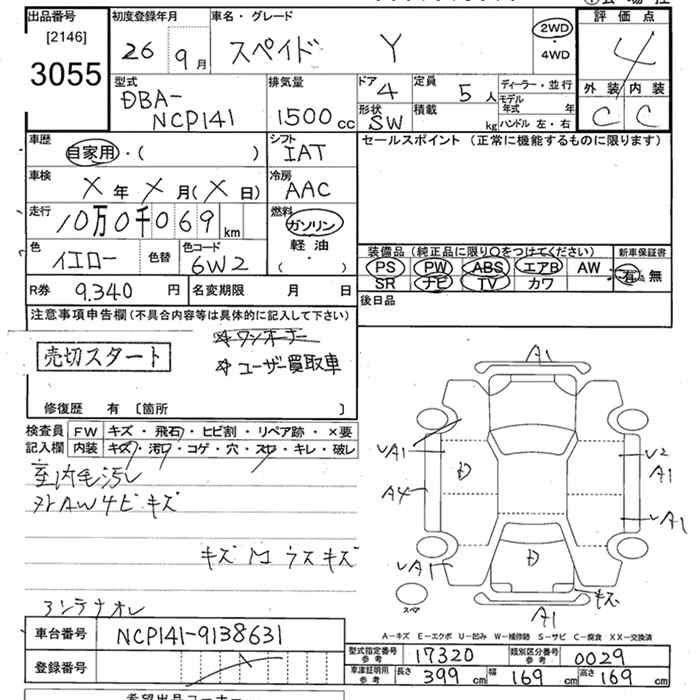 出品番号 初度登録年月 車名・グレード 評価点
[2146] 26 9月 スペイド Y 2WD 4
3055 4WD
型式 排気量 ドア 定員 ディーラー・並行 外装 内装
DBA- 4 5人 モデル年式 年 C C
NCP141 1500cc 形状 SW 積載 kg ハンドル 左・右
車歴 シフト セールスポイント (正常に機能するものに限ります)
自家用・( ) IAT
車検 冷房
X年 X月(X日) AAC
走行 燃料
10万0千069km ガソリン
色 色替 色コード 軽油 装備品 (純正品に限り〇をつけてください) 新車保証書
イエロー 6W2 ( ・ ) PS PW ABS エアB AW 有 無
R券 9.340円 名変期限 月 日 SR ナビ TV カワ
後日品
注意事項申告欄(不具合内容等は具体的に記入して下さい)
☆ワンオーナー
売切スタート ☆ユーザー買取車
修復歴 有 [箇所 ]
検査員 FW キズ・飛石・ヒビ割・リペア跡・×要
記入欄 内装 キズ・汚れ・コゲ・穴・スレ・キレ・破レ
室内毛汚レ
外AW4ビキズ
キズ
アンテナオレ
A1
A1
2
A1
A4
A1
A1
キズ
スペア
A1
A－キズ E－エクボ U－凹み W－補修跡 S－サビ C－腐食 XX－交換済
車台番号 NCP141-9138631
型式指定番号 参考 17320 類別区分番号 参考 0029
登録番号 車庫証明用 参考 長さ 399cm 幅 169cm 高さ 169cm
希望出品コーナー